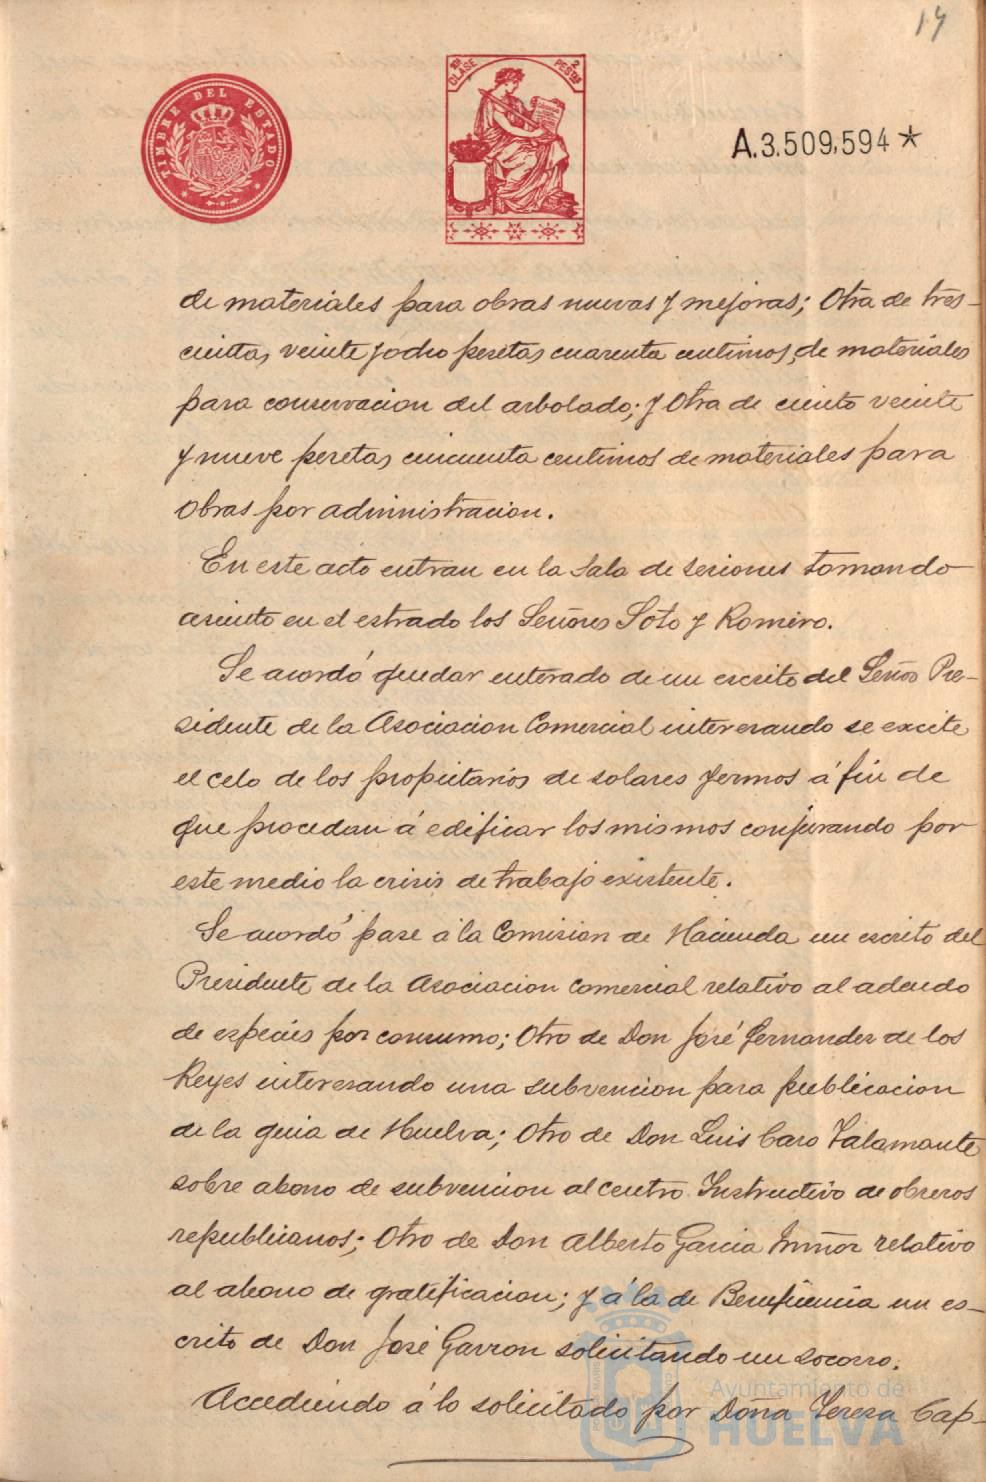 14
TIMBRE DEL ESTADO
10ª CLASE 2 PESTAS
A.3.509,594*
de materiales para obras nuevas y mejoras; Otra de tres-
cientas veinte y ocho pesetas cuarenta centimos, de materiales
para conservacion del arbolado; y Otra de ciento veinte
y nueve pesetas cincuenta centimos de materiales para
obras por administracion.
En este acto entran en la Sala de sesiones tomando
asiento en el estrado los Señores Soto y Romero.
Se acordó quedar enterado de un escrito del Señor Pre-
sidente de la Asociacion Comercial interesando se excite
el celo de los propietarios de solares yermos á fin de
que procedan á edificar los mismos conjurando por
este medio la crisis de trabajo existente.
Se acordó pase á la Comision de Hacienda un escrito del
Presidente de la Asociacion Comercial relativo al adeudo
de especies por consumo; Otro de Don José Fernandez de los
Reyes interesando una subvencion para publicacion
de la guia de Huelva; Otro de Don Luis Caro Talamante
sobre abono de subvencion al centro Instructivo de obreros
republicanos; Otro de Don Alberto Garcia Muñoz relativo
al abono de gratificacion; y á la de Beneficencia un es-
crito de Don José Garzon solicitando un socorro.
Accediendo á lo solicitado por Doña Teresa Cap-
Ayuntamiento de
HUELVA